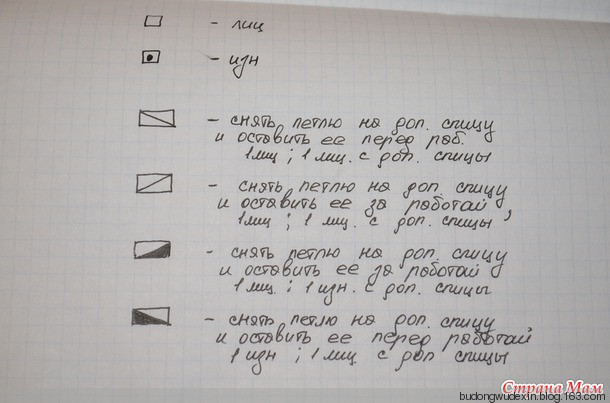 - лиц
- изн
- снять петлю на доп. спицу
и оставить ее перед раб.
1 лиц ; 1 лиц. с доп. спицы
- снять петлю на доп. спицу
и оставить ее за работай ,
1 лиц ; 1 лиц. с доп. спицы
- снять петлю на доп. спицу
и оставить ее за работай
1 лиц. ; 1 изн. с доп. спицы
- снять петлю на доп. спицу
и оставить ее перед работай
1 изн ; 1 лиц с доп спицы
Страна Мам
budongwudexin.blog.163.com